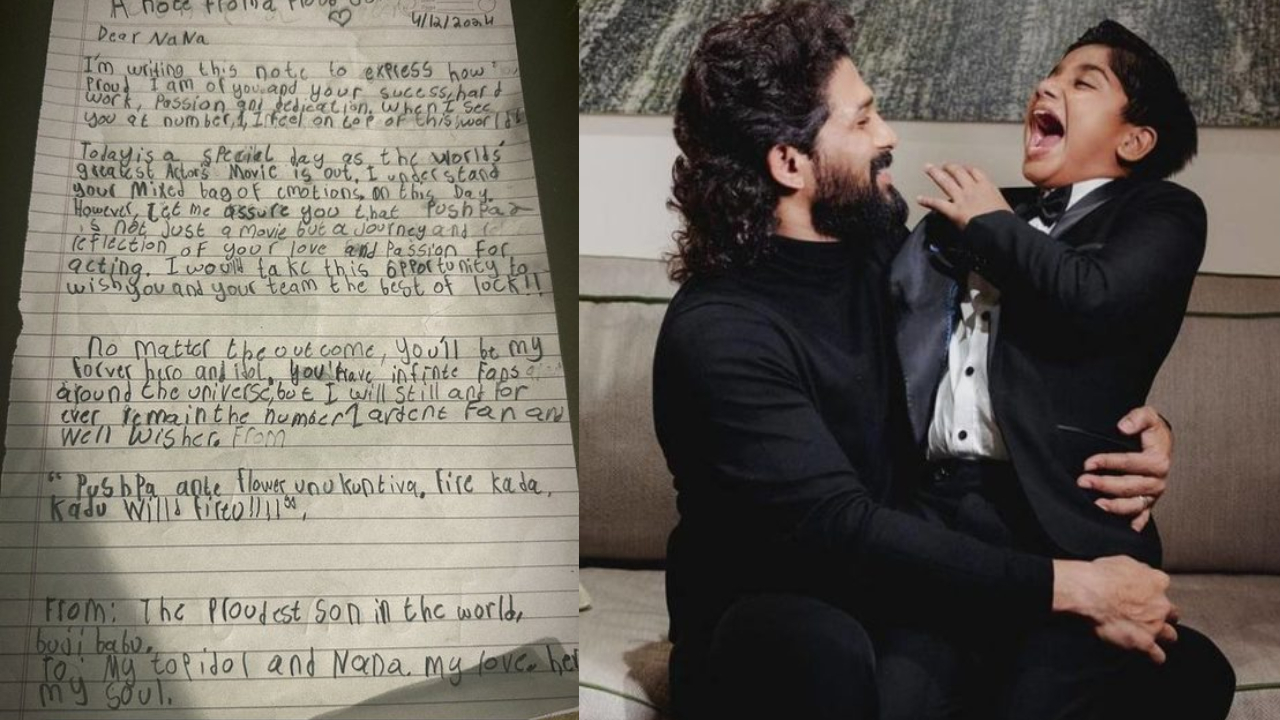 A note from a Proud
4/12/2024
Dear NaNa
I'm writing this note to express how
Proud I am of you and your sucess, hard
work, Passion and dedication. When I see
you at number 1, I feel on top of this world
Today is a special day as the worlds'
greatest Actor's Movie is out. I understand
your Mixed bag of emotions on this Day.
However, Let me assure you that Pushpa 2
is not Just a movie but a Journey and
reflection of your love and Passion for
acting. I would take this opportunity to
wish you and your team the best of lock!!
No matter the outcome, you'll be my
forver hero and idol. you have infinte Fans
around the universe, but I will still and for
ever remain the number 1 ardent Fan and
well wisher. From
“ PushPa ante flower unukuntiva. Fire kada,
kadu Willd fireu!!!!”.
From: The Proudest Son in the world,
buji babu.
To: My top idol and NaNa. my love. her
my soul.